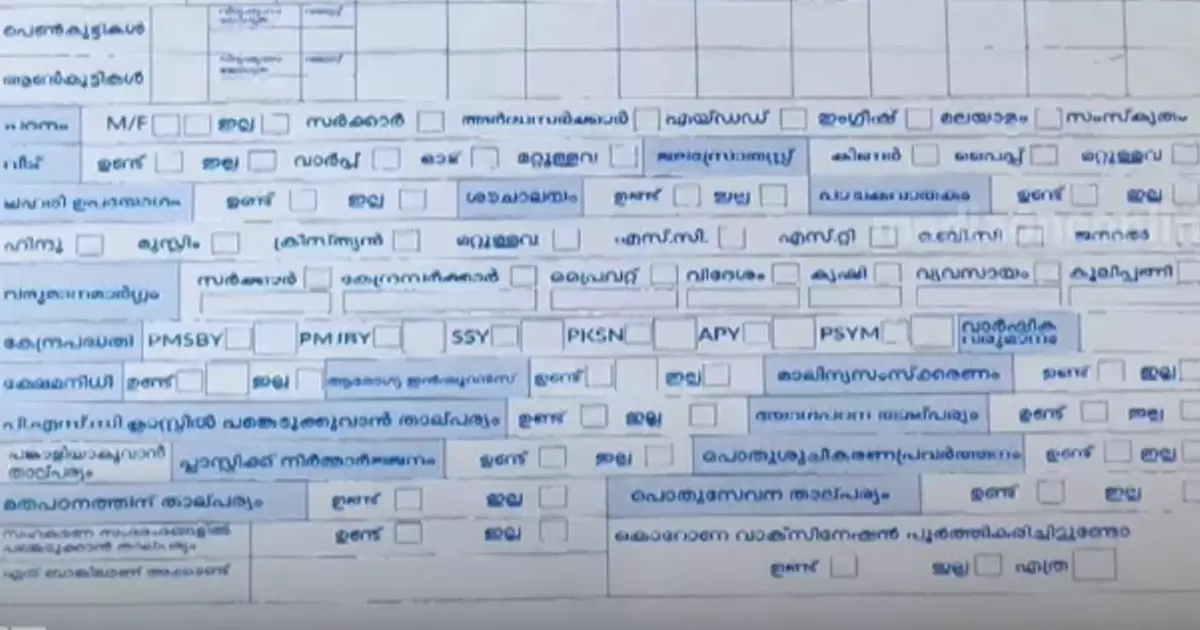 പെൺകുട്ടികൾ
ആൺകുട്ടികൾ
പഠനം M/F ഇല്ല സർക്കാർ അർദ്ധസർക്കാർ എയ്ഡഡ് ഇംഗ്ലീഷ് മലയാളം സംസ്കൃതം
വീട് ഉണ്ട് ഇല്ല വാർപ്പ് ഓട് മറ്റുള്ളവ ജലസ്രോതസ്സ് കിണർ പൈപ്പ് മറ്റുള്ളവ
ഉണ്ട് ഇല്ല ശൗചാലയം ഉണ്ട് ഇല്ല പാചകവാതകം ഉണ്ട് ഇല്ല
ഹിന്ദു മുസ്ലിം ക്രിസ്ത്യൻ മറ്റുള്ളവ എസ്.സി. എസ്.റ്റി ഒ.ബി.സി ജനറൽ
വരുമാനമാർഗ്ഗം സർക്കാർ കേന്ദ്രസർക്കാർ പ്രൈവറ്റ് വിദേശം കൃഷി വ്യവസായം കൂലിപ്പണി
കേന്ദ്രപദ്ധതി PMSBY PMJBY SSY PKSN APY PSYM വാർഷിക വരുമാനം
ക്ഷേമനിധി ഉണ്ട് ഇല്ല ആരോഗ്യ ഇൻഷുറൻസ് ഉണ്ട് ഇല്ല മാലിന്യസംസ്ക്കരണം ഉണ്ട് ഇല്ല
പി.എസ്.സി ക്ലാസ്സിൽ പങ്കെടുക്കുവാൻ താല്പര്യം ഉണ്ട് ഇല്ല താല്പര്യം ഉണ്ട് ഇല്ല
പങ്കാളിയാകുവാൻ താല്പര്യം പ്ലാസ്റ്റിക്ക് നിർമ്മാർജ്ജനം ഉണ്ട് ഇല്ല പൊതുശുചീകരണപ്രവർത്തനം ഉണ്ട് ഇല്ല
മതപഠനത്തിന് താല്പര്യം ഉണ്ട് ഇല്ല പൊതുസേവന താല്പര്യം ഉണ്ട് ഇല്ല
പങ്കെടുക്കാൻ താല്പര്യം ഉണ്ട് ഇല്ല കൊറോണ വാക്സിനേഷൻ പൂർത്തികരിച്ചിട്ടുണ്ടോ
ഏത് ബാങ്കിലാണ് അക്കൗണ്ട് ഉണ്ട് ഇല്ല എത്ര